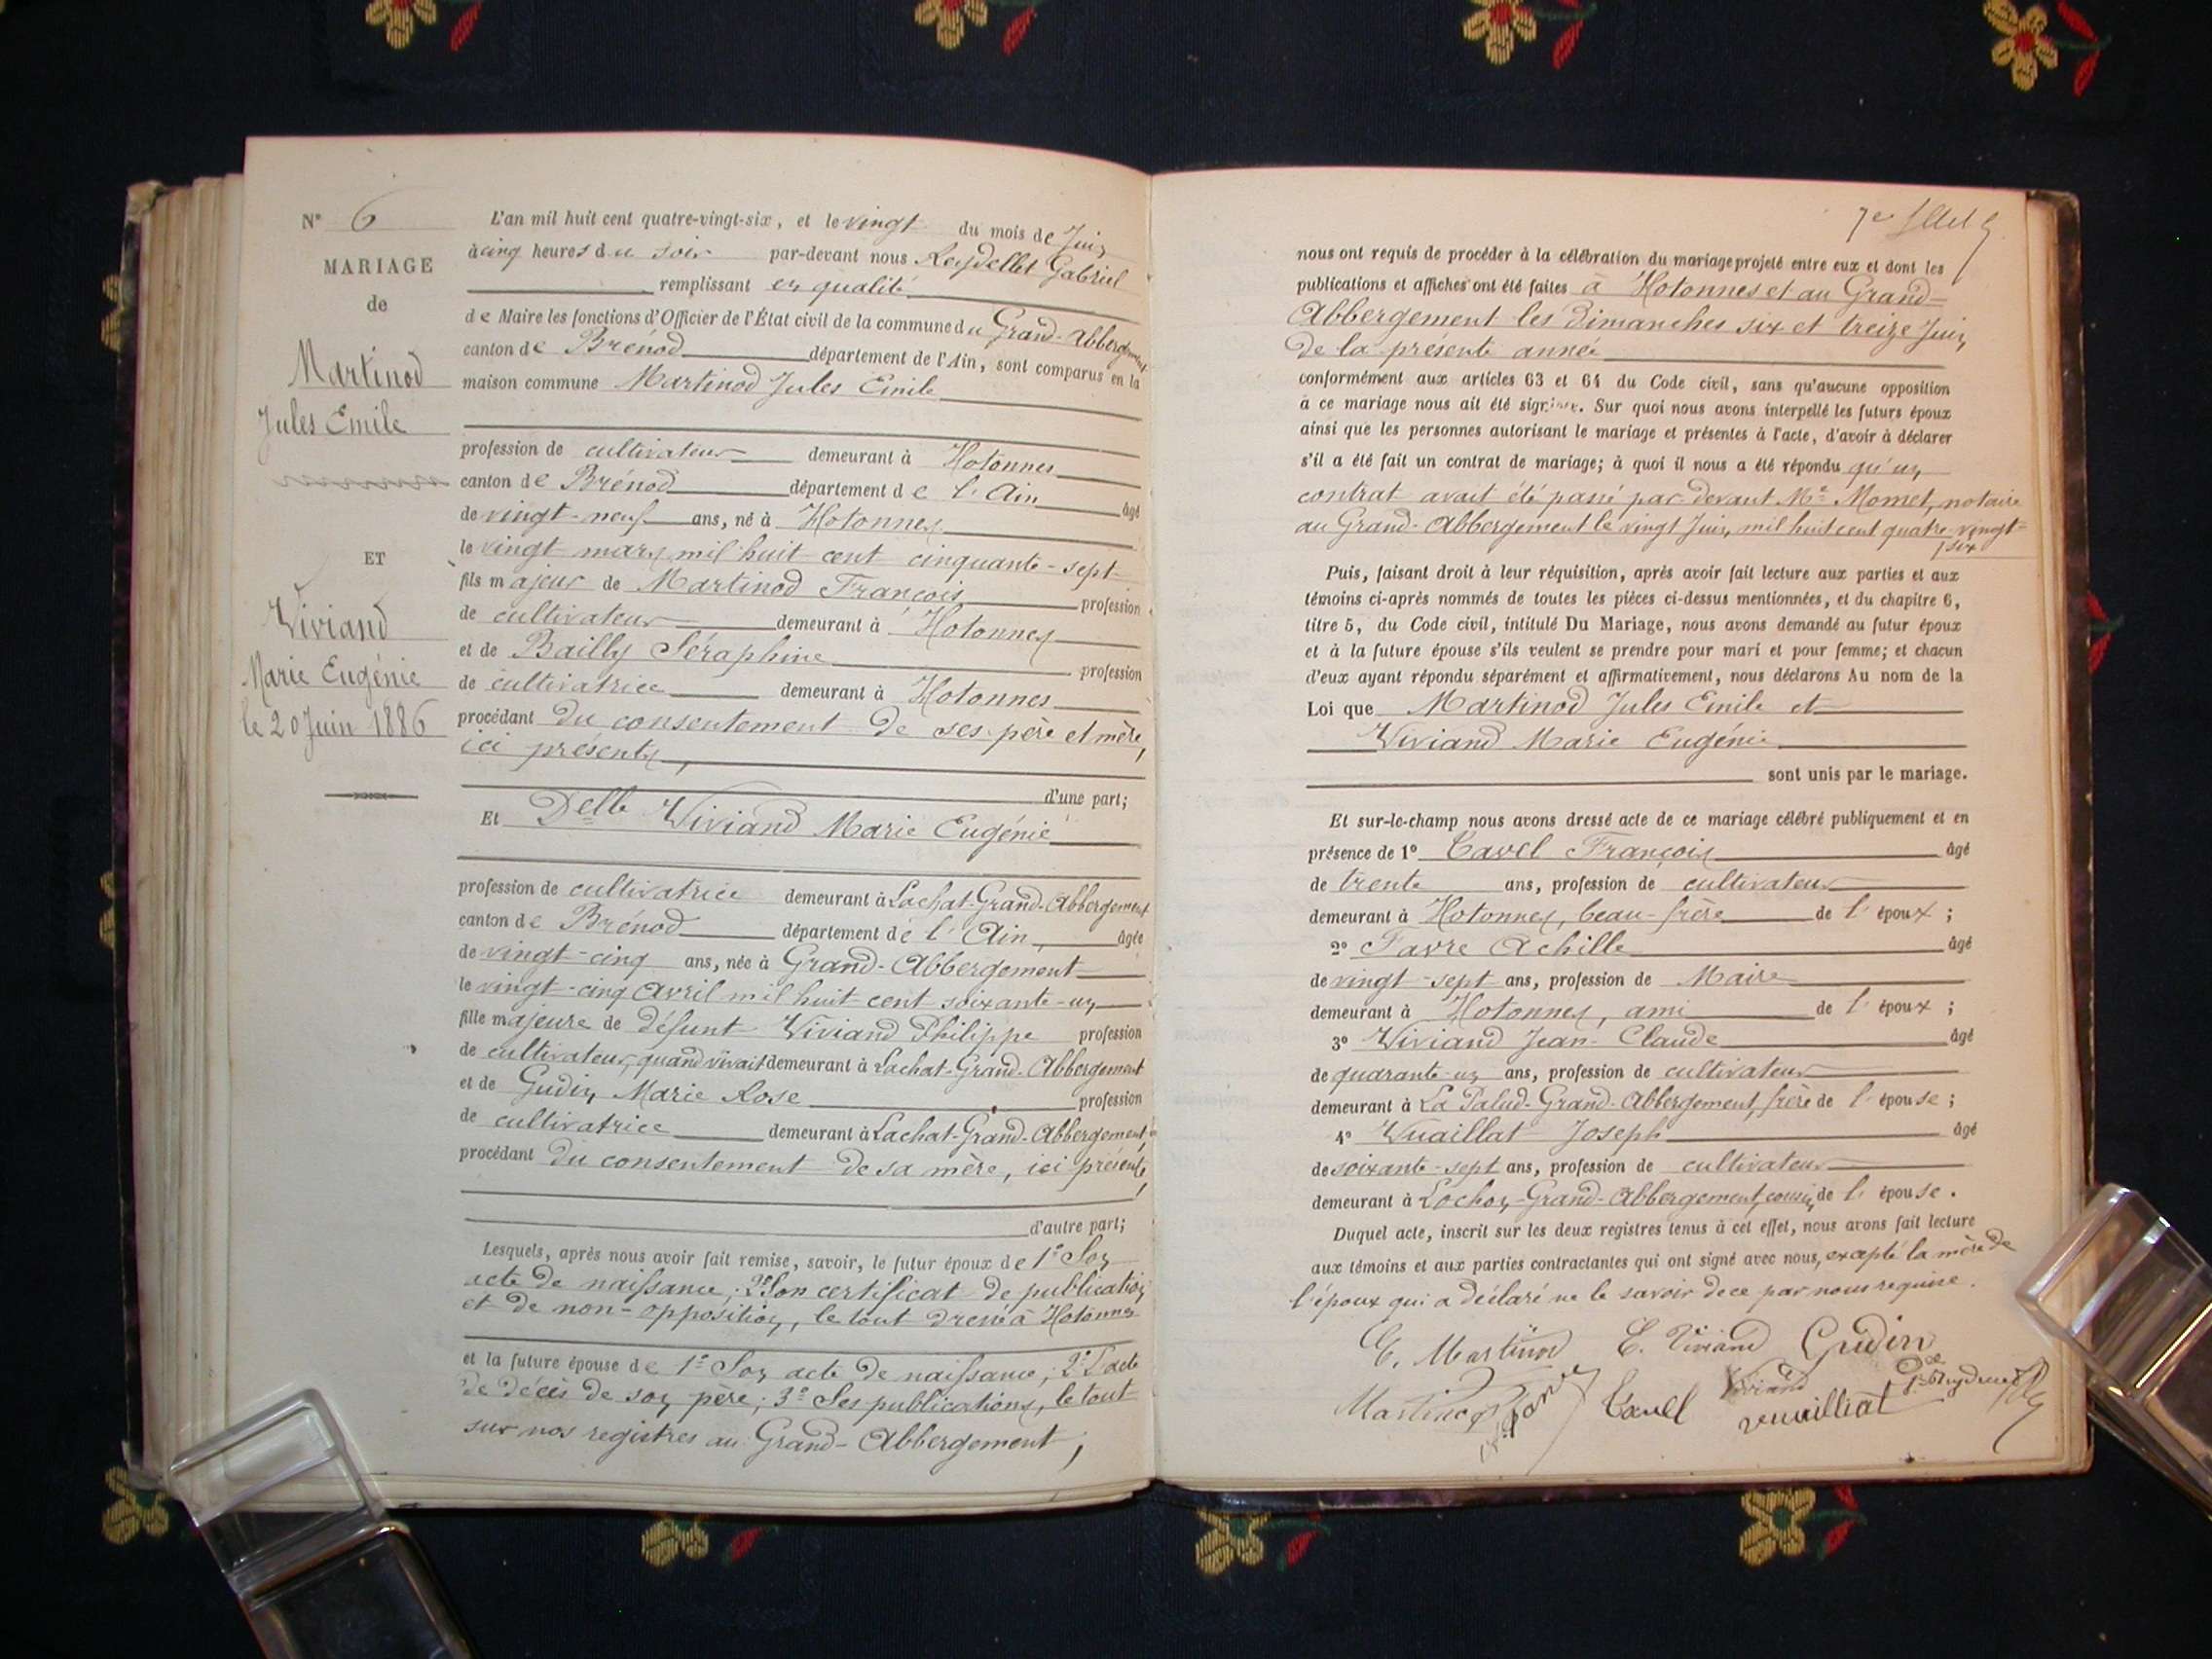 N° 6
MARIAGE
de
Martinod
Jules Emile
ET
Viviand
Marie Eugénie
le 20 Juin 1886
L'an mil huit cent quatre-vingt-six, et le vingt du mois de Juin
à cinq heures du soir par-devant nous Reydellet Gabriel
remplissant en qualité
de Maire les fonctions d'Officier de l'État civil de la commune du Grand-Abbergement
canton de Brénod département de l'Ain, sont comparus en la
maison commune Martinod Jules Emile
profession de cultivateur demeurant à Hotonnes
canton de Brénod département de l'Ain âgé
de vingt-neuf ans, né à Hotonnes
le vingt mars mil huit cent cinquante-sept
fils majeur de Martinod François profession
de cultivateur demeurant à Hotonnes
et de Bailly Séraphine profession
de cultivatrice demeurant à Hotonnes
procédant du consentement de ses père et mère,
ici présents,
d'une part;
Et Delle Viviand Marie Eugénie
profession de cultivatrice demeurant à Lachat-Grand-Abbergement
canton de Brénod département de l'Ain, âgée
de vingt-cinq ans, née à Grand-Abbergement
le vingt-cinq Avril mil huit cent soixante-un
fille majeure de défunt Viviand Philippe profession
de cultivateur, quand vivait demeurant à Lachat-Grand-Abbergement
et de Gudin Marie Rose profession
de cultivatrice demeurant à Lachat-Grand-Abbergement,
procédant du consentement de sa mère, ici présente,
d'autre part;
Lesquels, après nous avoir fait remise, savoir, le futur époux de 1° Son
acte de naissance; 2° Son certificat de publication
et de non-opposition, le tout dressé à Hotonnes
et la future épouse de 1° Son acte de naissance; 2° L'acte
de décès de son père; 3° Ses publications, le tout
sur nos registres au Grand-Abbergement;
nous ont requis de procéder à la célébration du mariage projeté entre eux et dont les
publications et affiches ont été faites à Hotonnes et au Grand-
Abbergement les Dimanches six et treize Juin
de la présente année
conformément aux articles 63 et 64 du Code civil, sans qu'aucune opposition
à ce mariage nous ait été signifiée. Sur quoi nous avons interpellé les futurs époux
ainsi que les personnes autorisant le mariage et présentes à l'acte, d'avoir à déclarer
s'il a été fait un contrat de mariage; à quoi il nous a été répondu qu'un
contrat avait été passé par devant Me Momet, notaire
au Grand-Abbergement le vingt Juin, mil huit cent quatre vingt-
six
Puis, faisant droit à leur réquisition, après avoir fait lecture aux parties et aux
témoins ci-après nommés de toutes les pièces ci-dessus mentionnées, et du chapitre 6,
titre 5, du Code civil, intitulé Du Mariage, nous avons demandé au futur époux
et à la future épouse s'ils veulent se prendre pour mari et pour femme; et chacun
d'eux ayant répondu séparément et affirmativement, nous déclarons Au nom de la
Loi que Martinod Jules Emile et
Viviand Marie Eugénie
sont unis par le mariage.
Et sur-le-champ nous avons dressé acte de ce mariage célébré publiquement et en
présence de 1° Cavel François âgé
de trente ans, profession de cultivateur
demeurant à Hotonnes, beau-frère de l'époux;
2° Favre Achille âgé
de vingt-sept ans, profession de Maire
demeurant à Hotonnes, ami de l'époux;
3° Viviand Jean-Claude âgé
de quarante-un ans, profession de cultivateur
demeurant à La Palud-Grand-Abbergement, frère de l'épouse;
4° Vuaillat Joseph âgé
de soixante-sept ans, profession de cultivateur
demeurant à Lochon-Grand-Abbergement, cousin de l'épouse.
Duquel acte, inscrit sur les deux registres tenus à cet effet, nous avons fait lecture
aux témoins et aux parties contractantes qui ont signé avec nous, excepté la mère de
l'époux qui a déclaré ne le savoir de ce par nous requise.
E. Martinod E. Viviand Gudin
Martinod Cavel Viviand
vuaillat